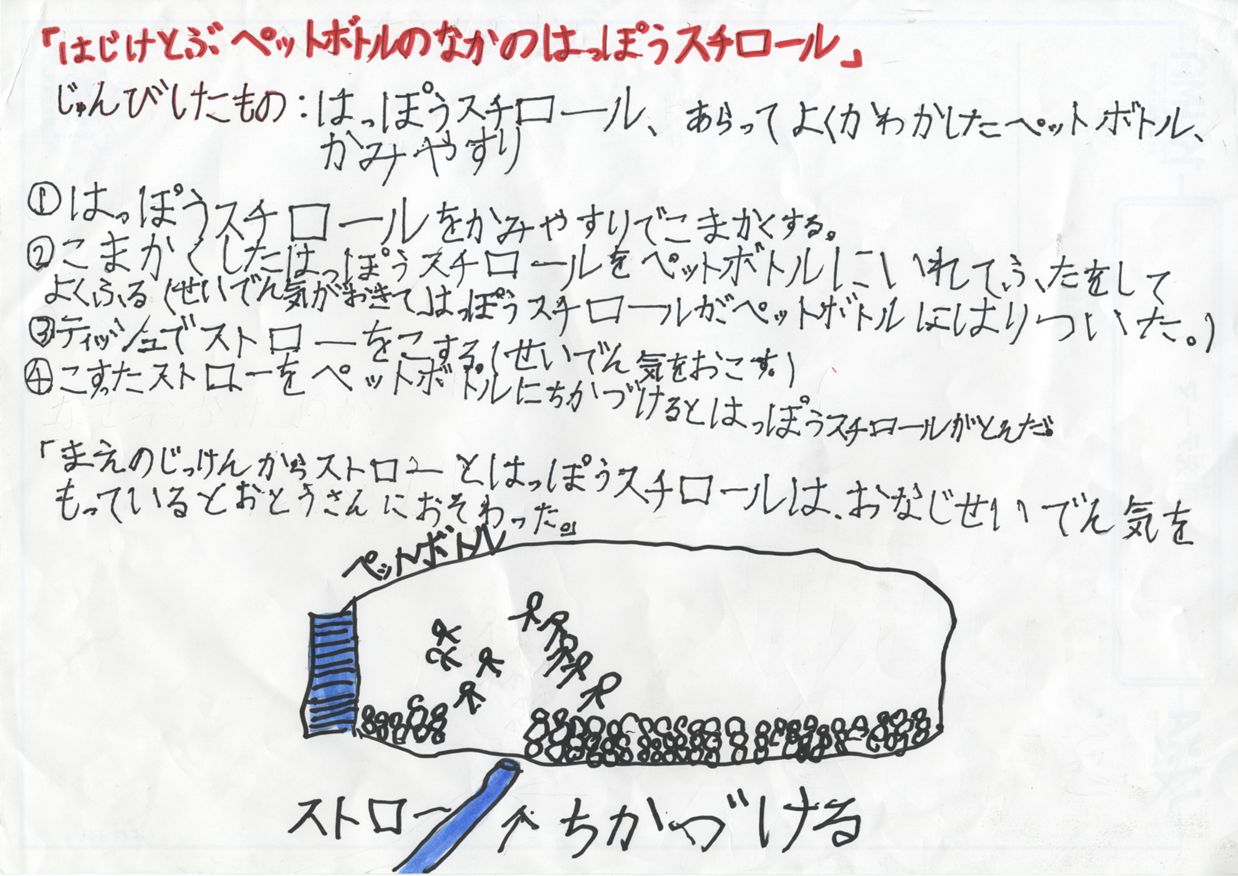 「はじけとぶペットボトルのなかのはっぽうスチロール」
じゅんびしたもの：はっぽうスチロール、あらってよくかわかしたペットボトル、
かみやすり
①はっぽうスチロールをかみやすりでこまかくする。
②こまかくしたはっぽうスチロールをペットボトルにいれてふたをして
よくふる（せいでん気がおきてはっぽうスチロールがペットボトルにはりついた。）
③ティッシュでストローをこする。（せいでん気をおこす。）
④こすったストローをペットボトルにちかづけるとはっぽうスチロールがとんだ。
「まえのじっけんからストローとはっぽうスチロールは、おなじせいでん気を
もっているとおとうさんにおそわった。」
ペットボトル
ストロー ↑ちかづける